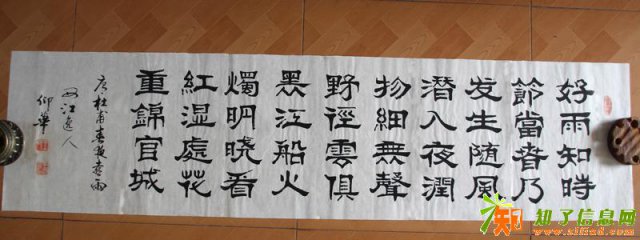 好雨知時
節當春乃
发生随風
潜入夜潤
物細無聲
野徑雲俱
黑江船火
燭明晓看
紅湿處花
重錦官城
唐杜甫春夜喜雨
江逸人
仰華
知了信息网